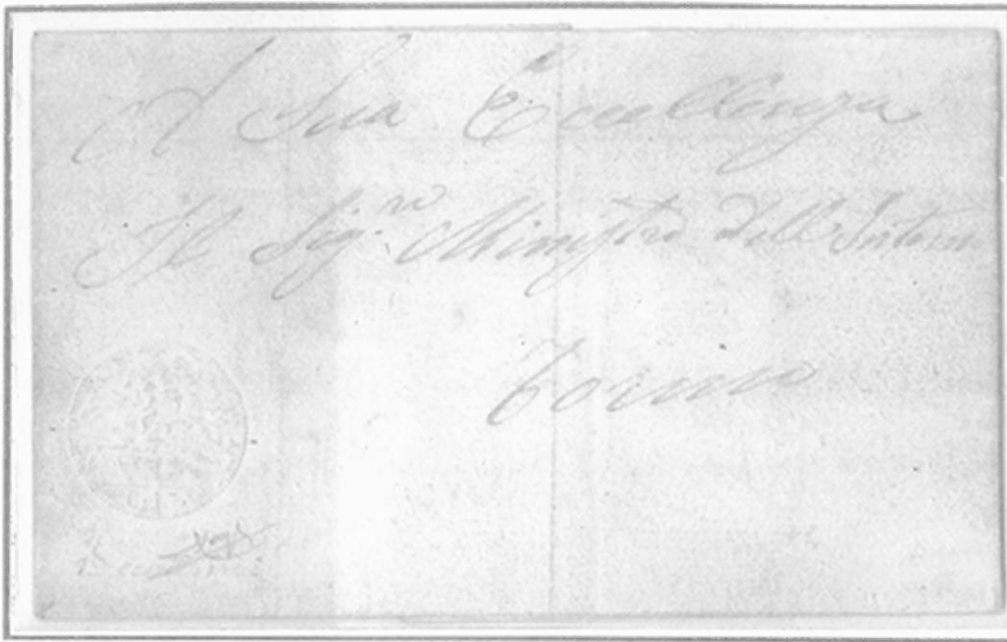 A Sua Eccellenza
Il Sig.ro Ministro dell'Interno
Torino